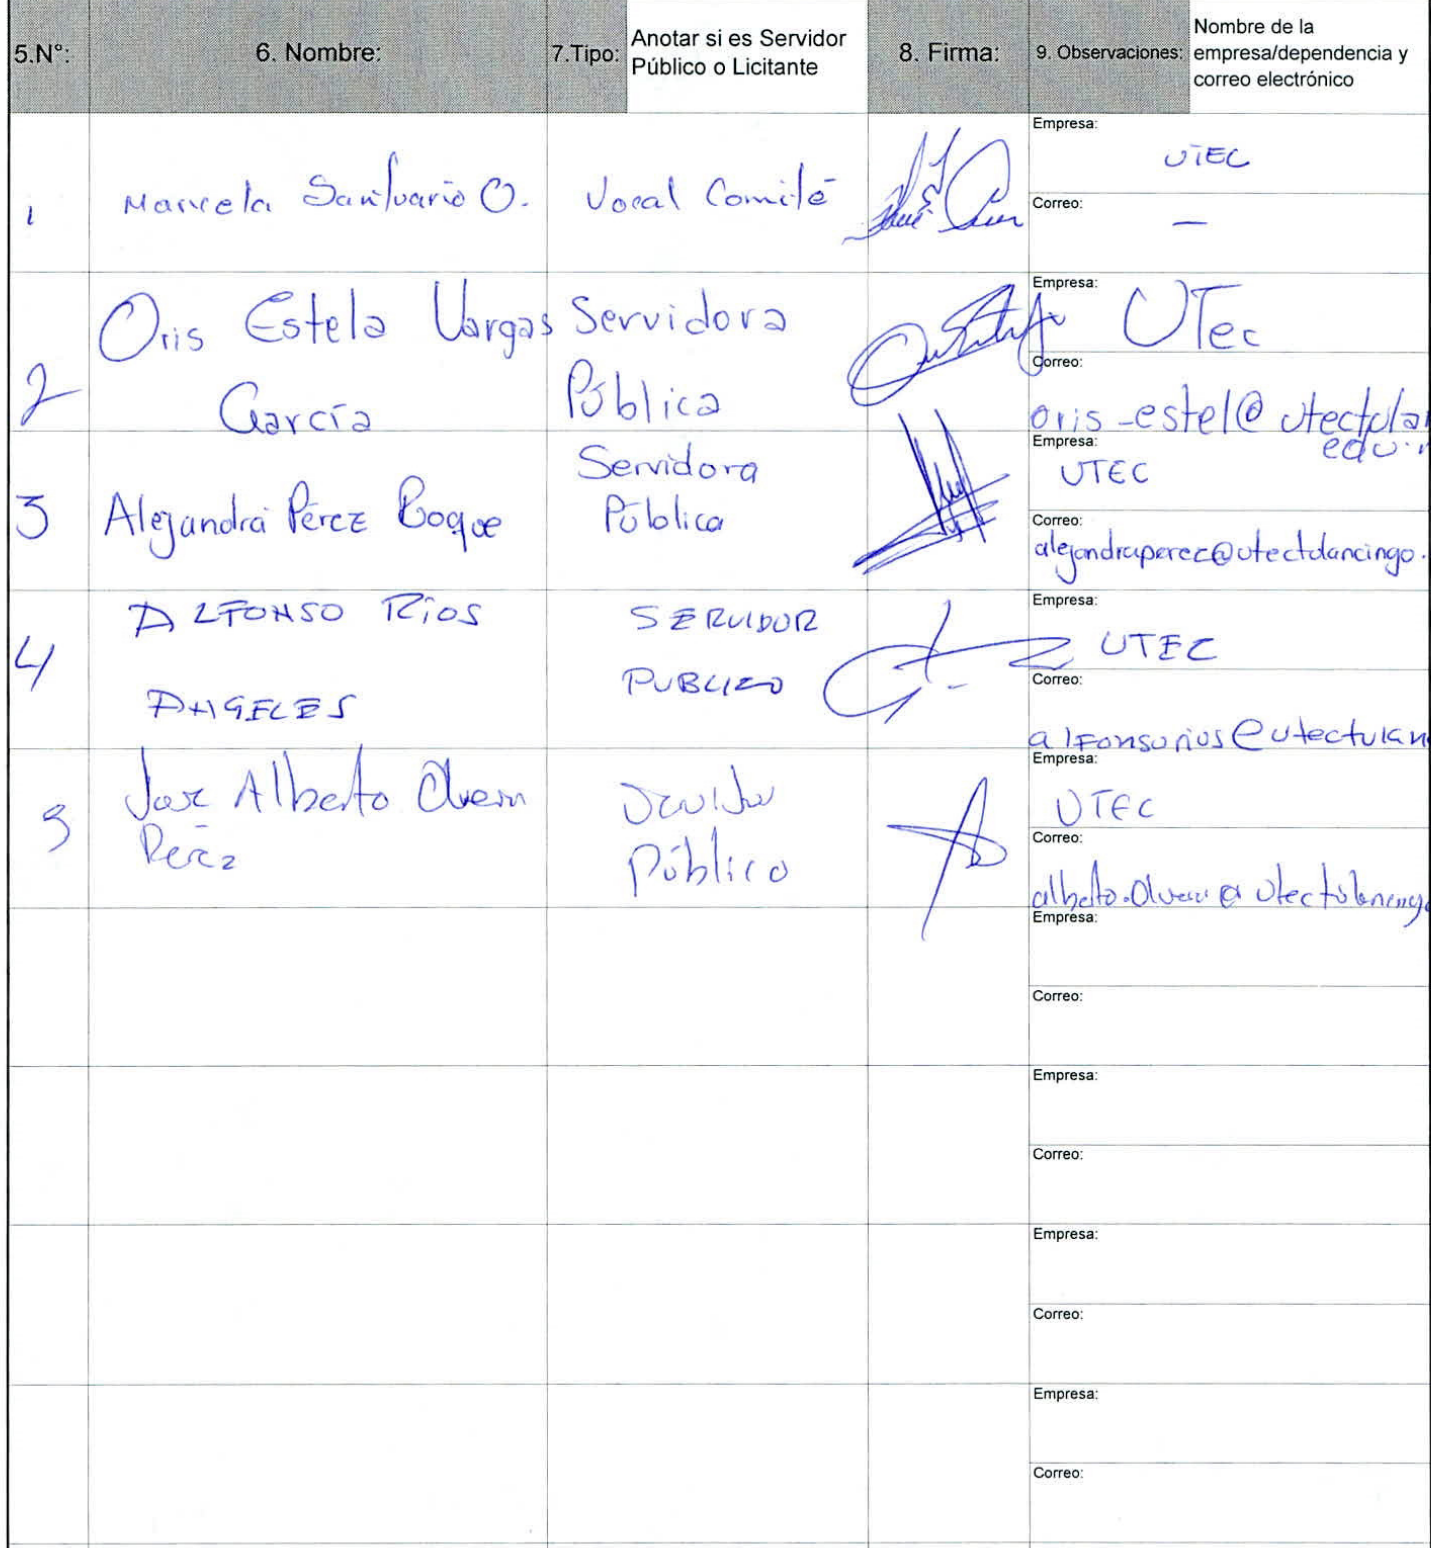 5.N°: 6. Nombre: 7.Tipo: Anotar si es Servidor Público o Licitante 8. Firma: 9. Observaciones: Nombre de la empresa/dependencia y correo electrónico
1 Marcela Santuario O. Vocal Comité
Empresa: UTEC
Correo: —
2 Oris Estela Vargas García Servidora Pública
Empresa: UTec
Correo: oris_estel@utectulan
edu.
3 Alejandra Pérez Roque Servidora Pública
Empresa: UTEC
Correo: alejandraperez@utectulancingo.
4 ALFONSO RIOS ANGELES SERVIDOR PUBLICO
Empresa: UTEC
Correo: alfonsorios@utectulan
5 José Alberto Olvera Pérez Servidor Público
Empresa: UTEC
Correo: alberto.olvera@utectulancingo
Empresa:
Correo:
Empresa:
Correo:
Empresa:
Correo:
Empresa:
Correo: